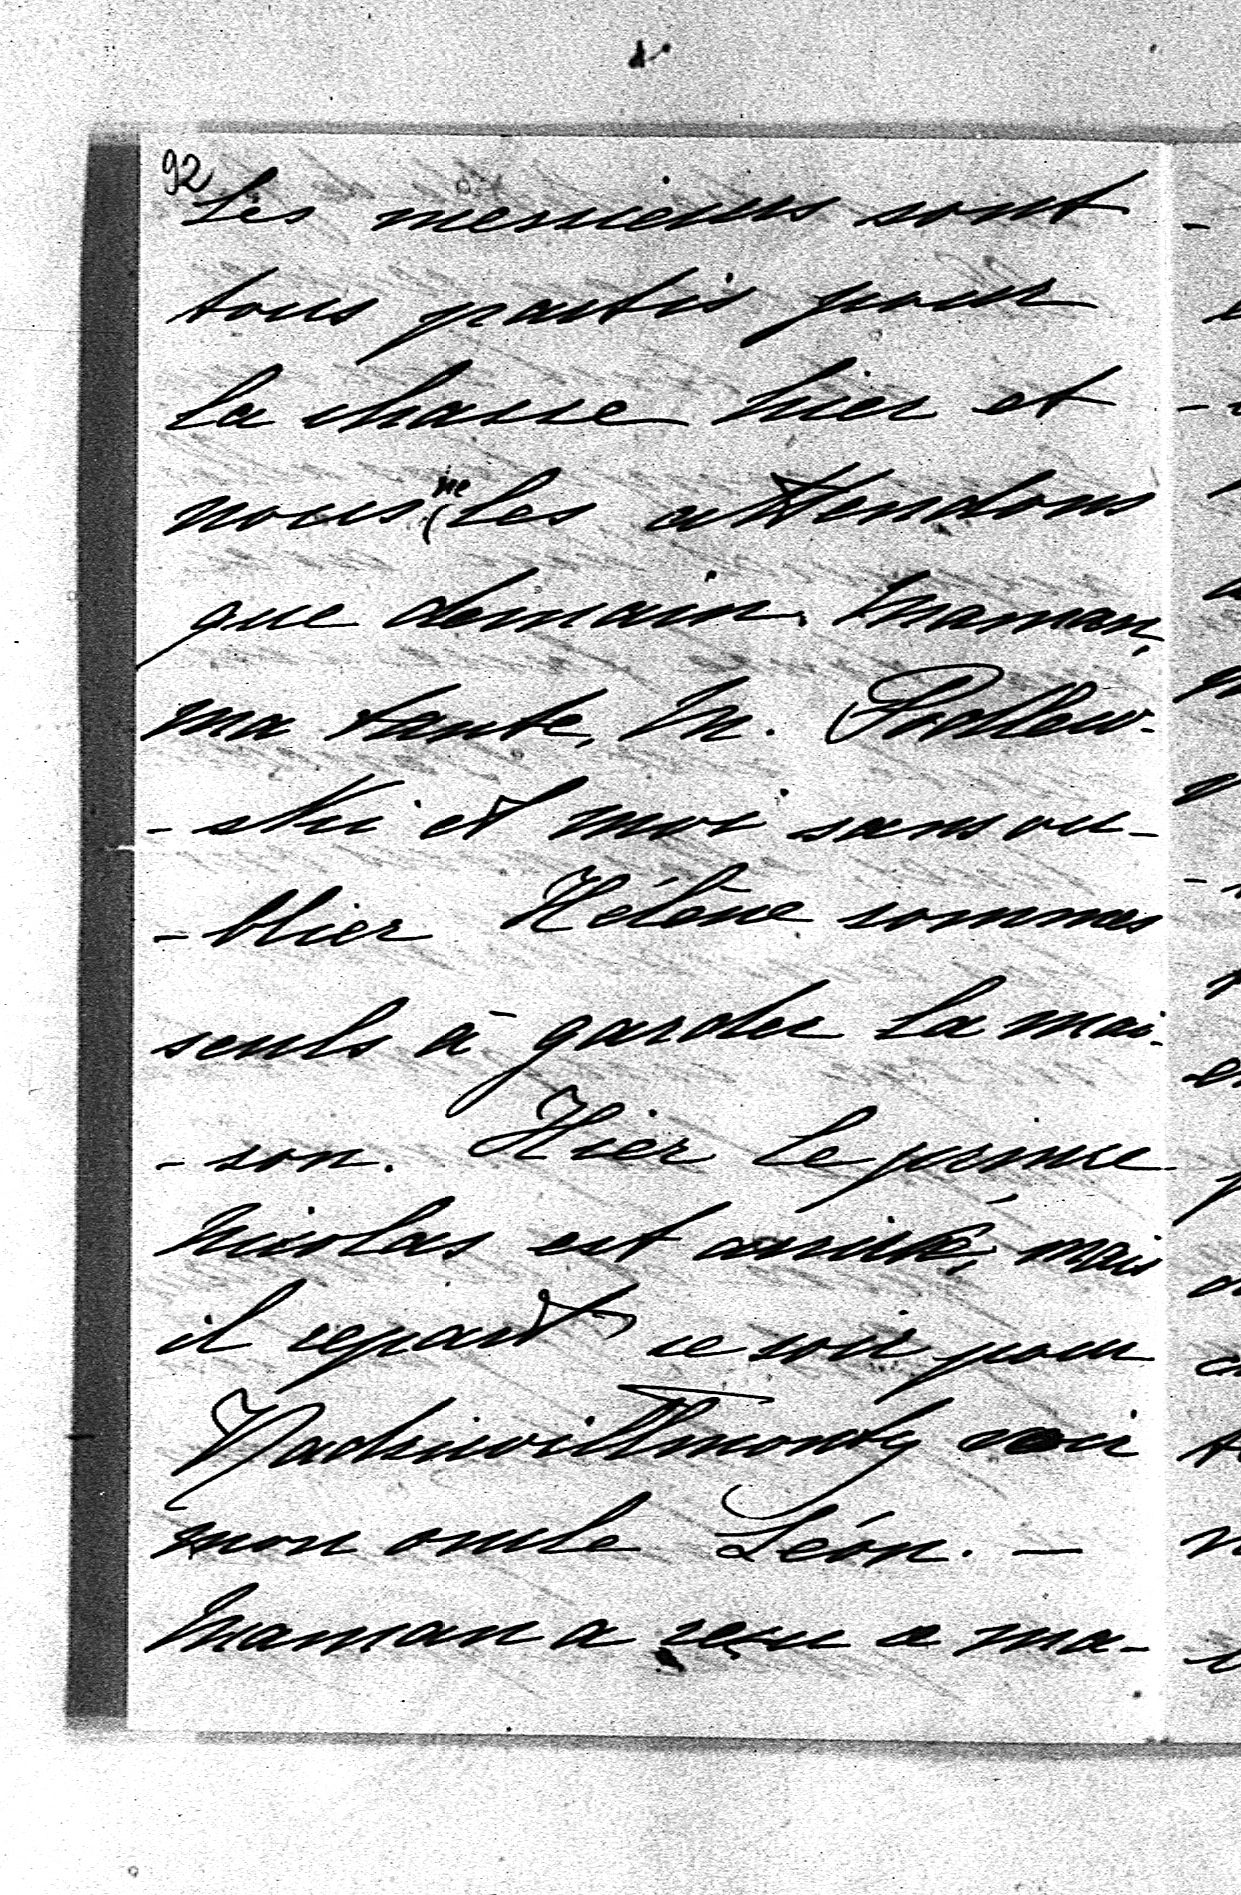 92
Les messieurs sont
tous partis pour
la chasse hier et
nous ne les attendons
que demain. Maman,
ma tante, M.
-ski et moi sans ou-
-blier Hélène sommes
seuls à garder la mai-
-son. Hier le prince
Nicolas est arrivé, mais
il repart ce soir pour
voir
mon oncle Léon. —
Maman a reçu ce ma-